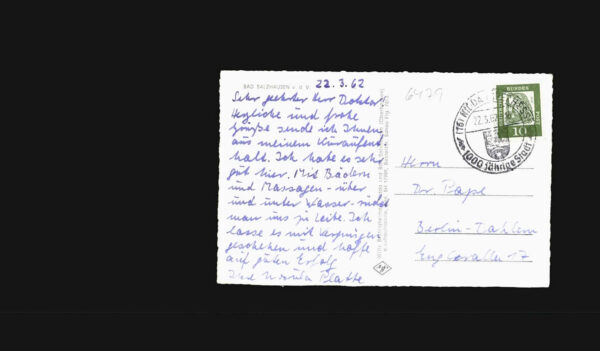 BAD SALZHAUSEN
22.3.62
Sehr geehrter Herr Doktor
Herzliche und frohe
Grüße sende ich Ihnen
aus meinem Kuraufent
halt. Ich habe es sehr
gut hier. Mit Bädern
und Massagen - über
und unter Wasser - rückt
man uns zu Leibe. Ich
lasse es mit Vergnügen
geschehen und hoffe
auf guten Erfolg
Ihre Ursula Platte
6479
(16) NIDDA
22.3.62
1000 jährige Stadt
BUNDES
10
Herrn
Dr. Pape
Berlin-Dahlem
17